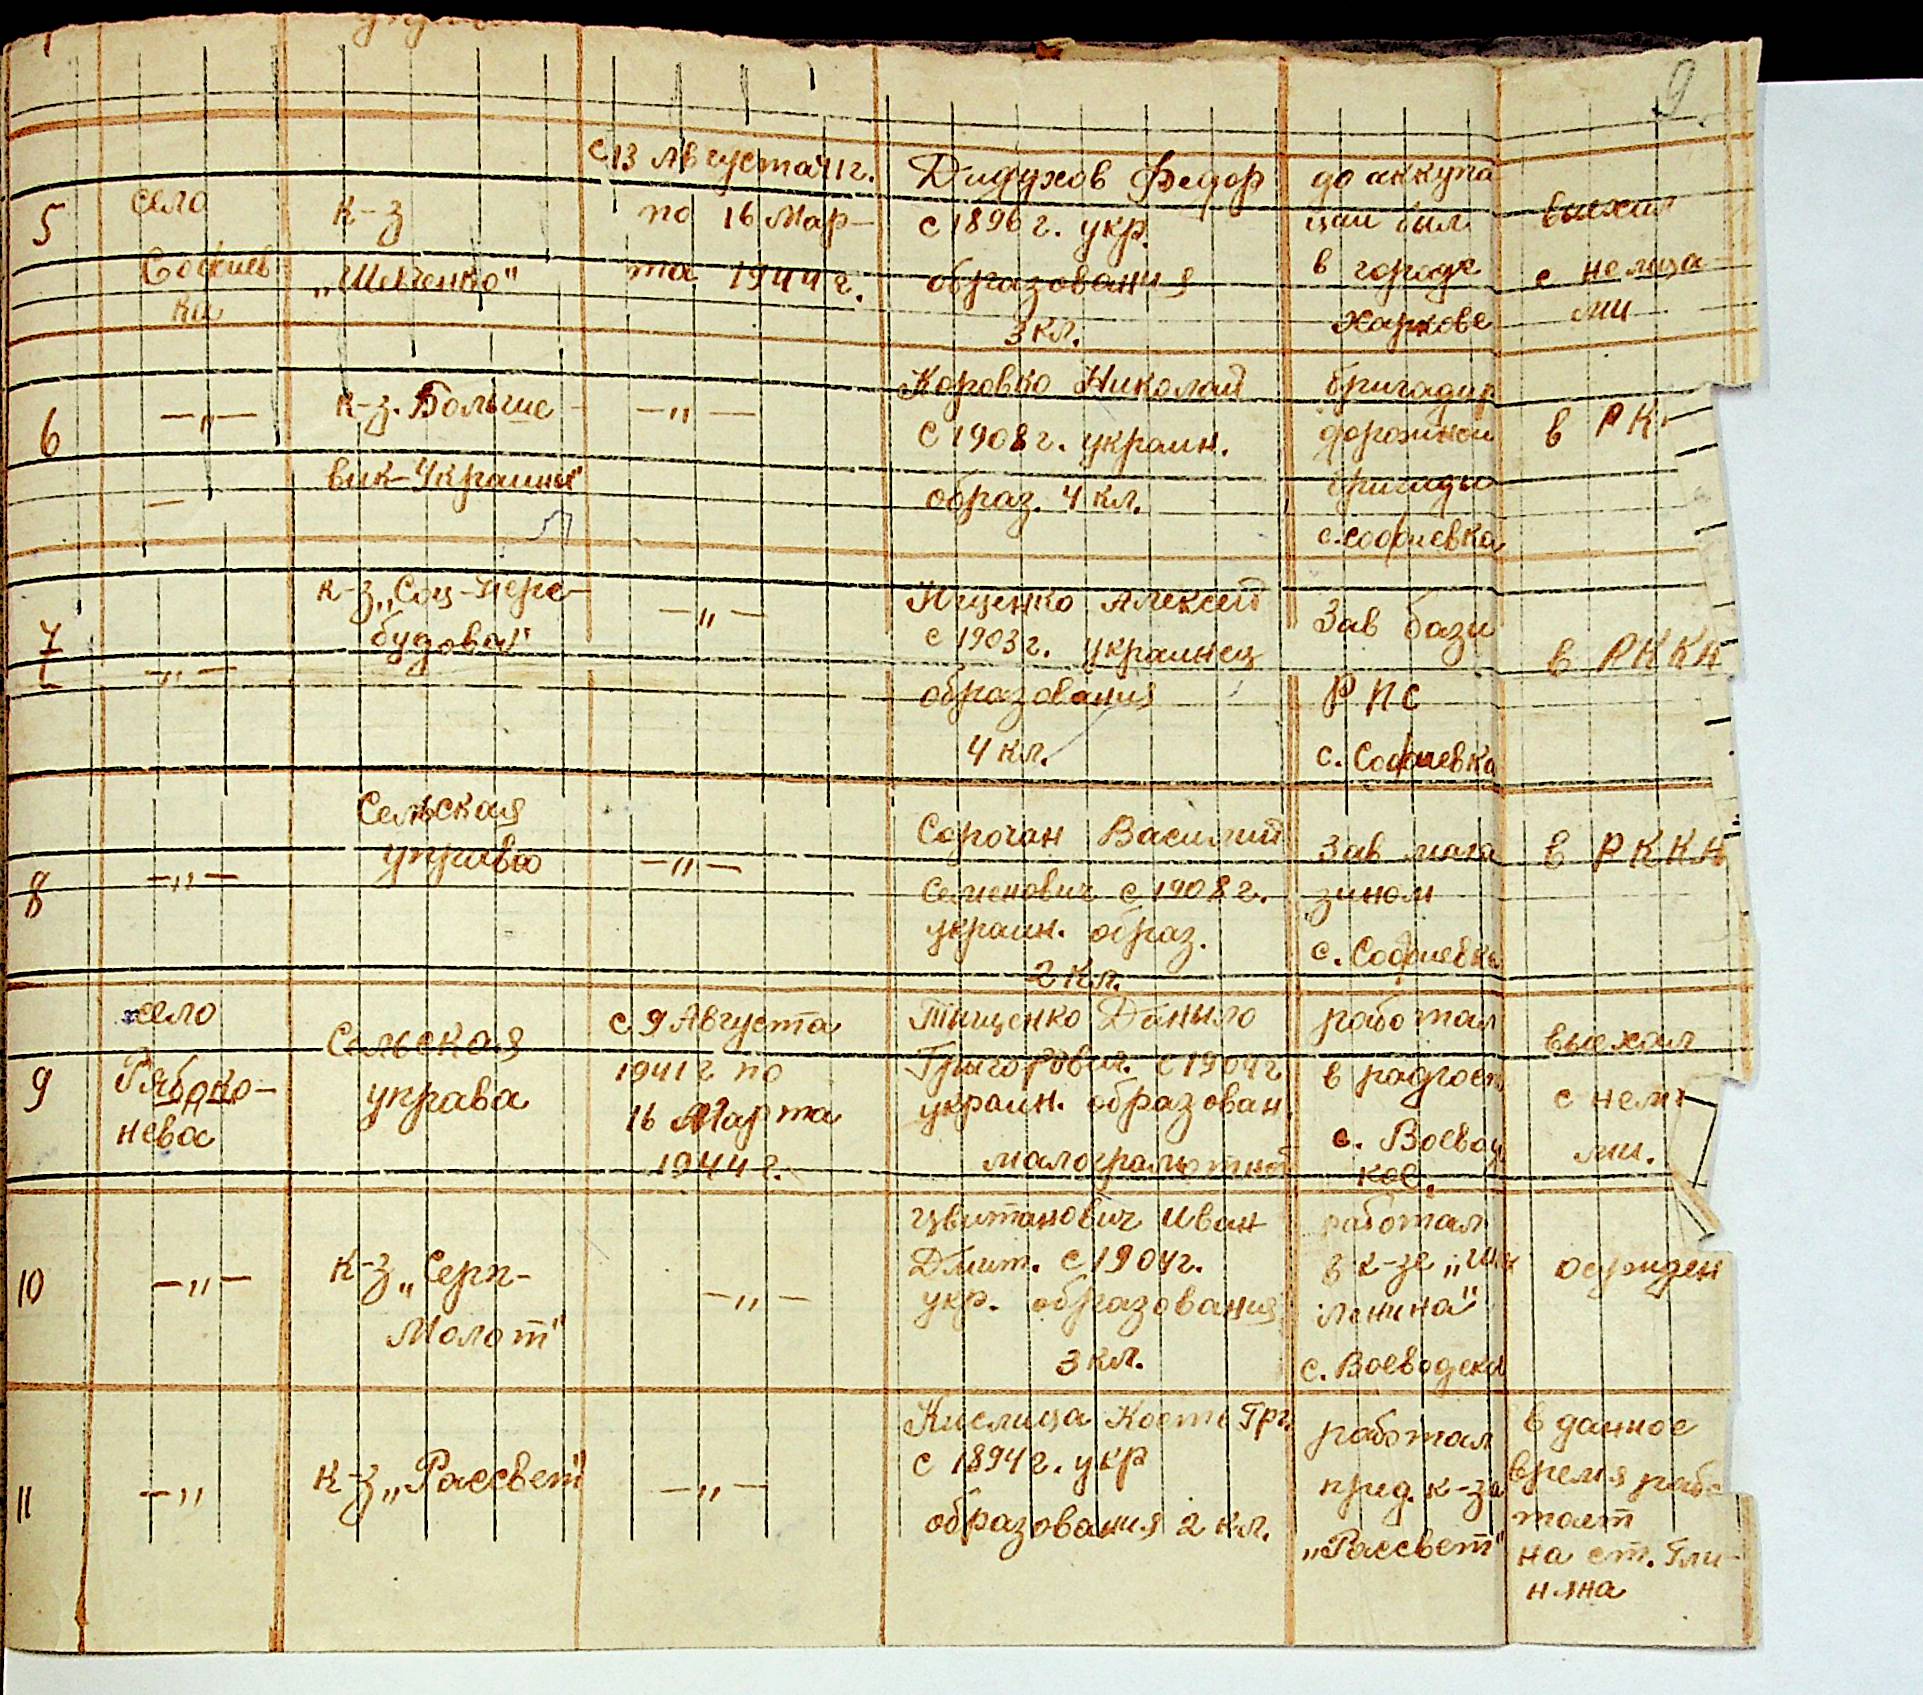 9
5
село
Софиев
ка
к-з
„Шевченко"
с 13 Августа 41г.
по 16 Мар-
та 1944г.
Дидухов Федор
с 1896г. укр.
образования
3 кл.
до аккупа
ции был
в городе
Харкове
выехал
с немца-
ми
6
—„—
—
к-з. Больше-
вик-Украины"
—„—
Коровко Николай
с 1908г. украин.
образ. 4 кл.
бригадир
дорожной
бригады
с. Софиевка
в РК
7
—„—
к-з „Соц-пере-
будова"
—„—
Алексей
с 1903г. украинец
образования
4 кл.
Зав базы
РПС
с. Софиевка
в РККА
8
—„—
Сельская
управа
—„—
Сорочан Василий
Семенович с 1908г.
украин. образ.
2 кл.
Зав мага
зином
с. Софиевка
в РККА
9
село
Рябоко-
нево
Сельская
управа
с 9 Августа
1941г по
16 Марта
1944г.
Тищенко Данило
Григорович. с 1904г
украин. образован.
малограмотной
работал
в радгосп
с. Воевод
кое.
выехал
с нем
ми.
10
—„—
к-з „Серп-
Молот"
—„—
Цвитанович Иван
Дмит. с 1904г.
укр. образования
3 кл.
работал
в к-зе
Ленина"
с. Воеводска
осужден
11
—„
к-з „Рассвет"
—„—
Кислица Кость Гри
с 1894г. укр
образования 2 кл.
работал
пред. к-за
„Рассвет"
в данное
время рабо-
тает
на ст. Гли-
няна